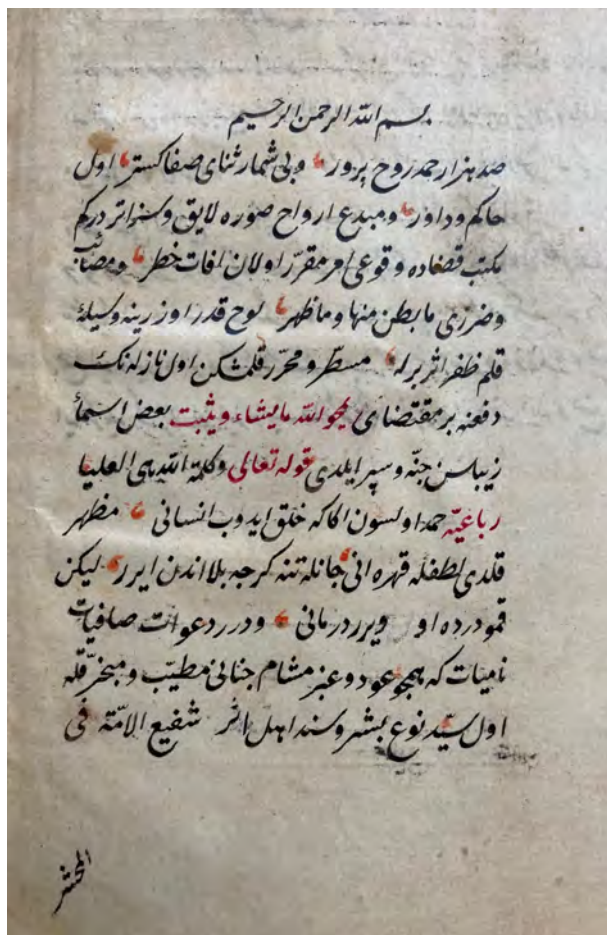 بسم الله الرحمن الرحيم
صد هزار حمد روح پرور و بی شمار ثنای صفا کستر اول
حاکم و داور و مبدع ارواح صوره لایق و سزاتر درکم
مکتب قضاده وقوعی امر مقرر اولان افات خطر و مصائب
وضرری ما بطن منها وما ظهر لوح قدر اوزرینه وسیلهٔ
قلم ظفر اثر برله مسطر و محرر قلمشکن اول نازله نک
دفعنه بر مقتضای یمحو الله ما یشاء ویثبت بعض اسمأ
زیباسن جنه و سپر ایلدی قوله تعالی وکلمة الله هی العلیا
رباعیه حمد اولسون اکا که خلق ایدوب انسانی مظهر
قلدی لطفله قهره انی جانله تنه کرچه بلا اندن ایرر لیکن
قمو درده او ویرر درمانی و درر دعوات صافیات
نامیات که همچو عود و عنبر مشام جنانی مطیب و مبخر قله
اول سید نوع بشر و سند اهل اثر شفیع الامة فی
المحشر